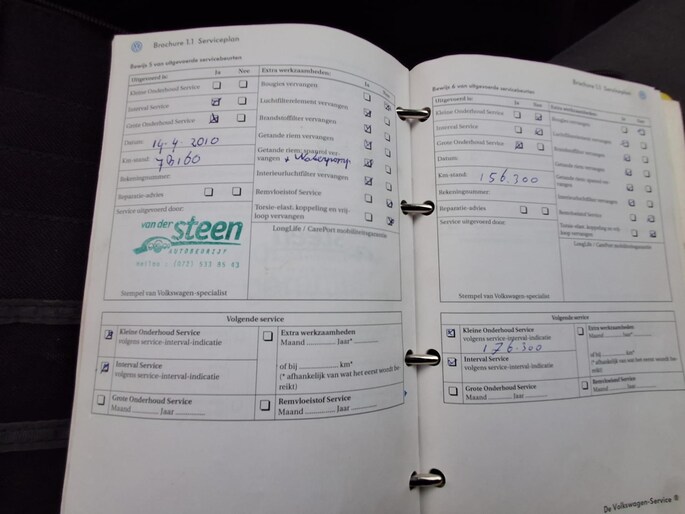 Brochure 1.1 Serviceplan
Bewijs 5 van uitgevoerde servicebeurten
Uitgevoerd is: Ja Nee
Kleine Onderhoud Service
Interval Service
Grote Onderhoud Service
Datum: 14-4-2010
Km-stand: 78160
Rekeningnummer:
Reparatie-advies
Service uitgevoerd door:
van der
steen
AUTOBEDRIJF
Heiloo (072) 533 95 43
Stempel van Volkswagen-specialist
Extra werkzaamheden: Ja Nee
Bougies vervangen
Luchtfilterelement vervangen
Brandstoffilter vervangen
Getande riem vervangen
Getande riem; spanrol ver-
vangen + Waterpomp
Interieurluchtfilter vervangen
Remvloeistof Service
Torsie-elast; koppeling en vrij-
loop vervangen
LongLife / CarePort mobiliteitsgarantie
Volgende service
Kleine Onderhoud Service
volgens service-interval-indicatie
Interval Service
volgens service-interval-indicatie
Grote Onderhoud Service
Maand Jaar
Extra werkzaamheden
Maand Jaar*
of bij km*
(* afhankelijk van wat het eerst wordt be-
reikt)
Remvloeistof Service
Maand Jaar
Brochure 1.1 Serviceplan
Bewijs 6 van uitgevoerde servicebeurten
Uitgevoerd is: Ja Nee
Kleine Onderhoud Service
Interval Service
Grote Onderhoud Service
Datum:
Km-stand: 156.300
Rekeningnummer:
Reparatie-advies
Service uitgevoerd door:
Stempel van Volkswagen-specialist
Extra werkzaamheden: Ja Nee
Bougies vervangen
Luchtfilterelement vervangen
Brandstoffilter vervangen
Getande riem vervangen
Getande riem; spanrol ver-
vangen
Interieurluchtfilter vervangen
Remvloeistof Service
Torsie-elast; koppeling en vrij-
loop vervangen
LongLife / CarePort mobiliteitsgarantie
Volgende service
Kleine Onderhoud Service
volgens service-interval-indicatie
176.300
Interval Service
volgens service-interval-indicatie
Grote Onderhoud Service
Maand Jaar
Extra werkzaamheden
Maand Jaar*
of bij km*
(* afhankelijk van wat het eerst wordt be-
reikt)
Remvloeistof Service
Maand Jaar
De Volkswagen-Service